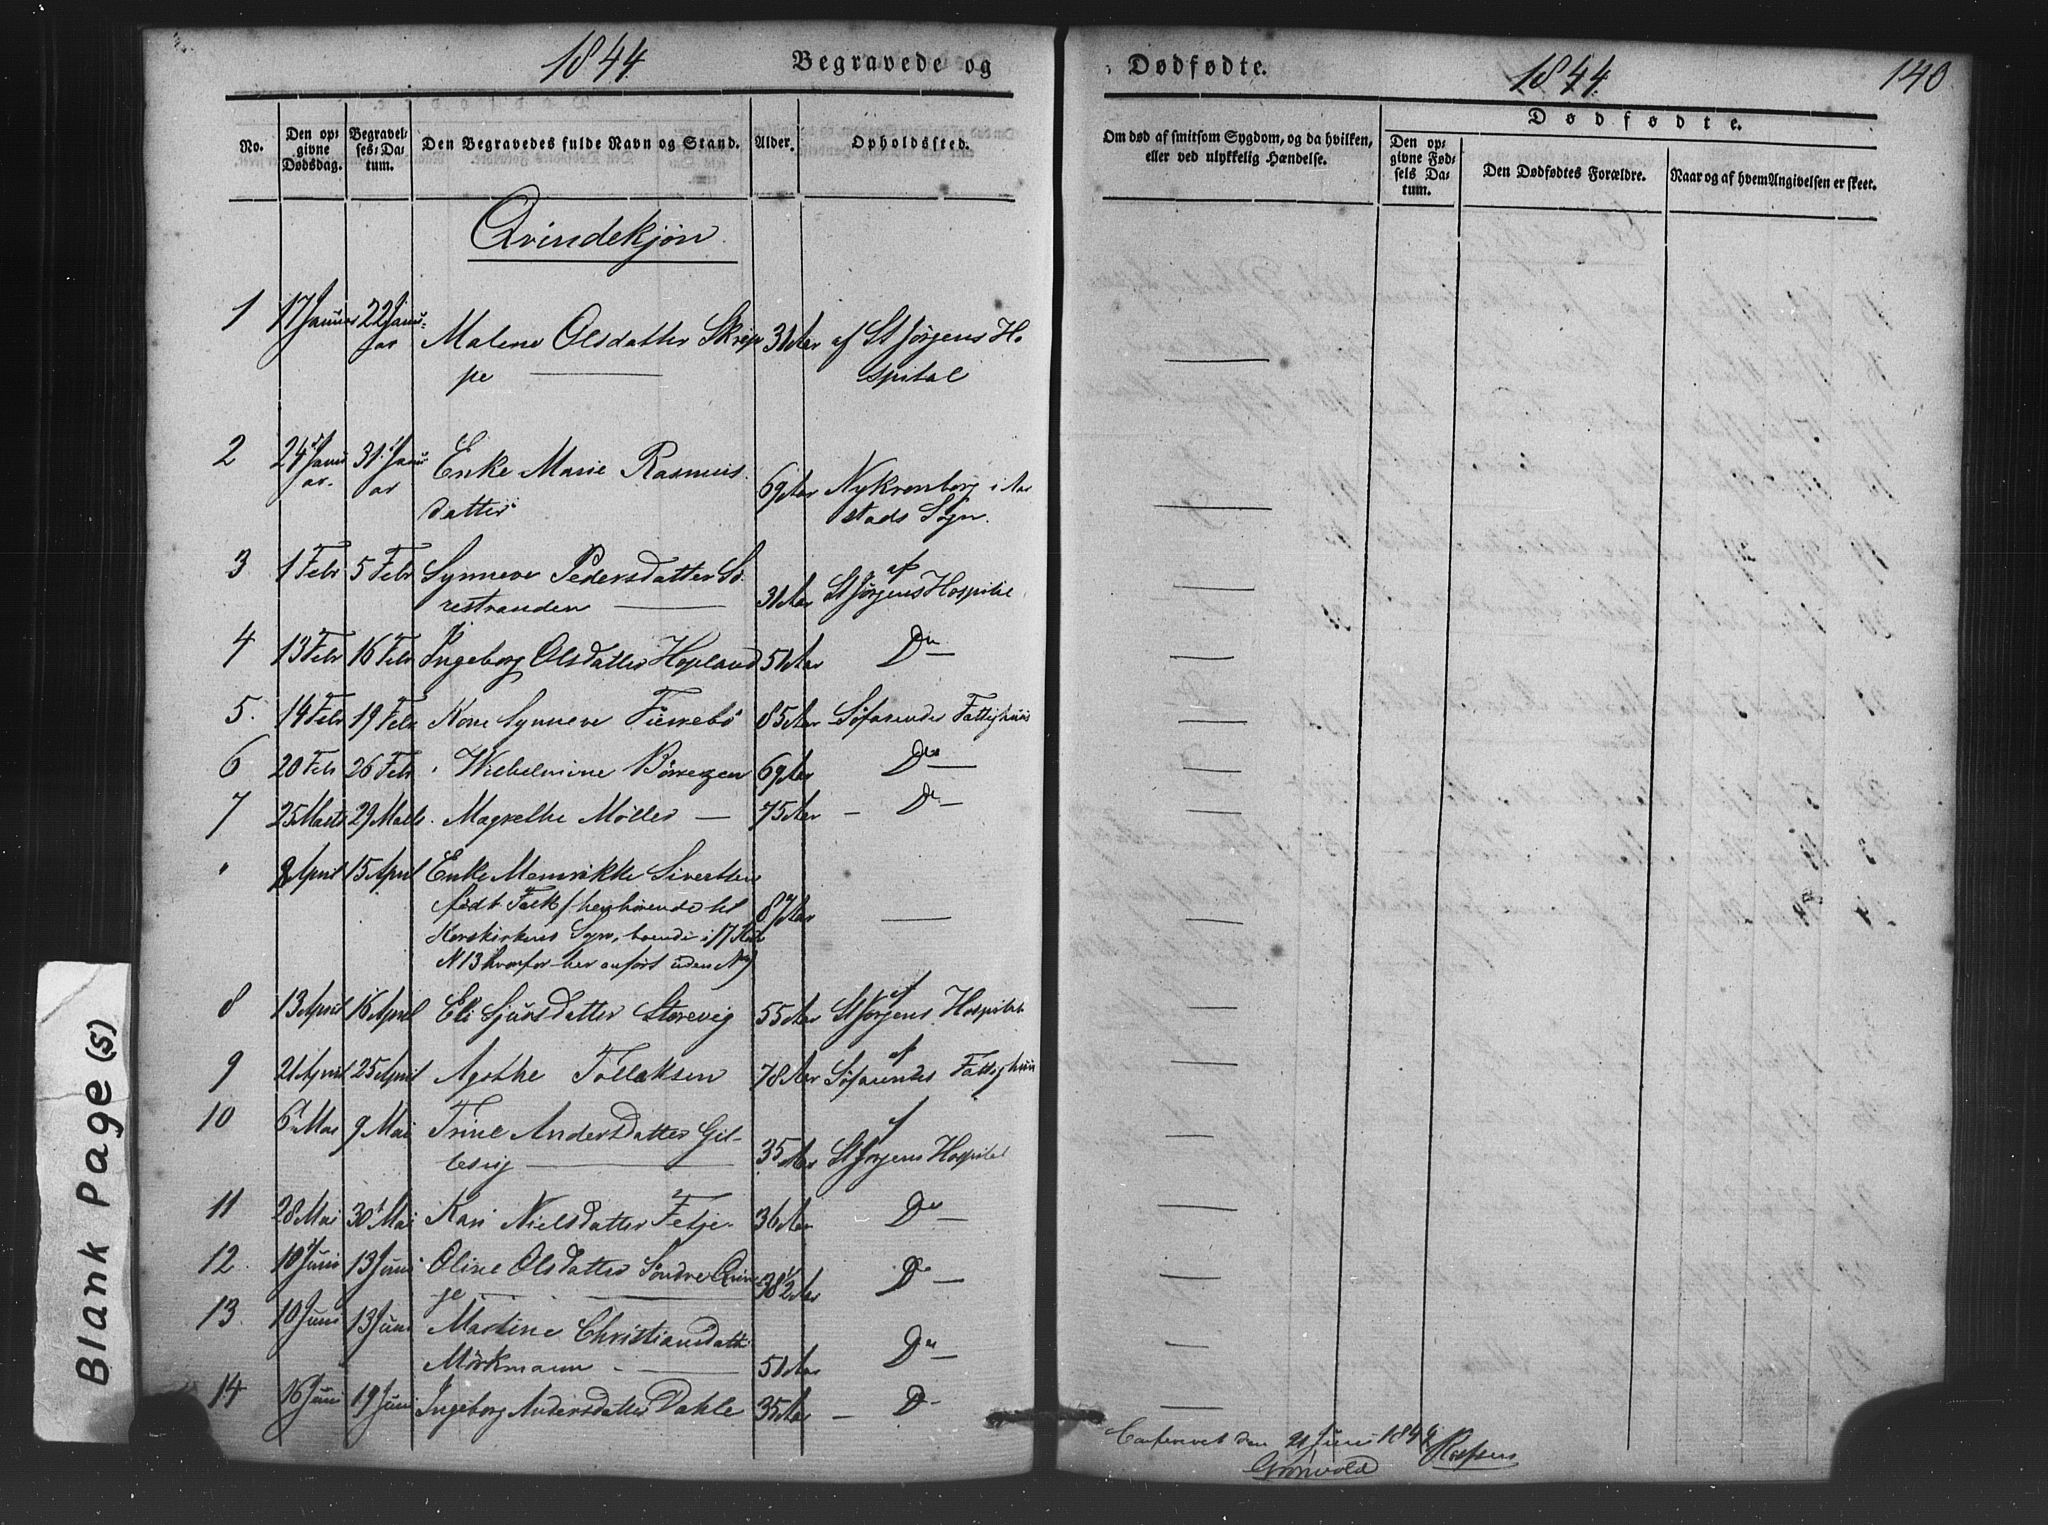 1844 Begravede og
Dødfødte. 1844 140
No. Den opgivne Dødsdag. Begravelses-Datum. Den Begravedes fulde Navn og Stand. Alder. Opholdssted.
Om død af smitsom Sygdom, og da hvilken, eller ved ulykkelig Hændelse.
Dødfødte.
Den opgivne Fødsels Datum. Den Dødfødtes Forældre. Naar og af hvem Angivelsen er skeet.
Qvindekjøn
1 17 Januar 22 Januar Malene Olsdatter Skrep 31 Aar af St Jørgens Ho
pe spital
2 24 Januar 31 Januar Enke Marie Rasmus
datter 69 Aar Nykronborg i Aa
stads Sogn.
3 1 Febr 5 Febr Synneve Pedersdatter Sø
restranden 31 Aar af St Jørgens Hospital
4 13 Febr 16 Febr Ingeborg Olsdatter Hopland 51 Aar Do
5. 14 Febr 19 Febr Kone Synneve 85 Aar Søfarendes Fattighuus
6 20 Febr 26 Febr Wilhelmine Børresen 69 Aar Do
7 25 Marts 29 Marts Magrethe Møller 75 Aar Do
" April 15 April Enke Sivertsen
født Falk / henhørende til 87 Aar
Korskirkens Sogn, boende i 17 Rode
N 13 hvorfor her anført uden No)
8 13 April 16 April Eli Sjursdatter Storevig 55 Aar af St Jørgens Hospital
9 21 April 25 April Agathe Tollaksen 78 Aar af Søfarendes Fattighuus
10 6 Mai 9 Mai Trine Andersdatter Gil-
lesvig 35 Aar af St Jørgens Hospital
11 28 Mai 30 Mai Kari Nielsdatter Fetje 36 Aar Do
12. 10 Juni 13 Juni Oline Olsdatter Søndre Qvin
ge 38 1/2 Aar Do
13. 10 Juni 13 Juni Martine Christiansdatter
Mörkmann 51 Aar Do
14 16 Juni 19 Juni Ingeborg Andersdatter Dahle 35 Aar Do
Confereret den 21 Juni 1844
Grönvold
Blank Page (s)